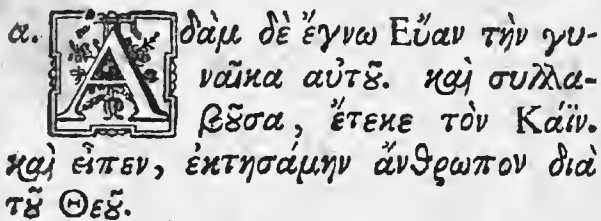 α. Ἀδὰμ δὲ ἔγνω Εὔαν τὴν γυ-
ναῖκα αὐτȣ͂. καὶ συλλα-
βȣ͂σα, ἔτεκε τὸν Κάϊν.
καὶ εἶπεν, ἐκτησάμην ἄνθρωπον διὰ
τȣ͂ Θεȣ͂.